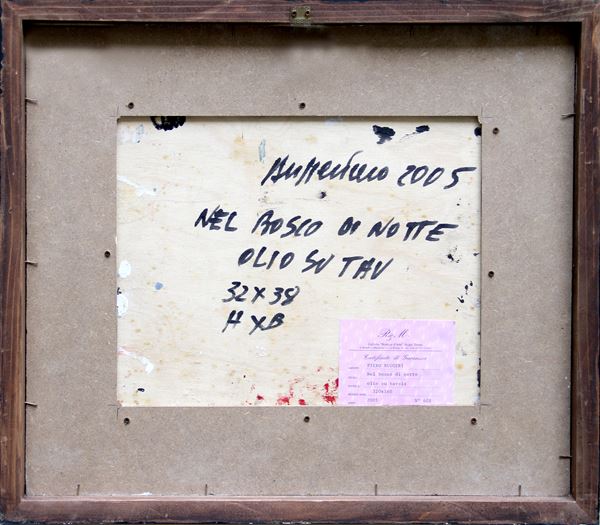 2005
NEL BOSCO DI NOTTE
OLIO SU TAV
32 X 38
H X B
R&M
Certificato di Garanzia
PIERO RUGGERI
Nel bosco di notte
olio su tavola
2005 N° 608